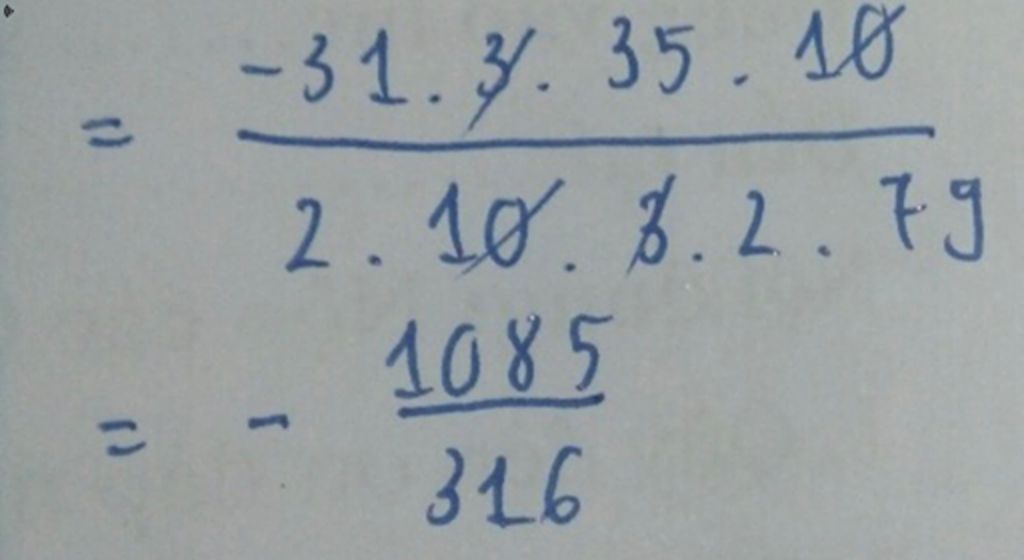 = -31 . 3 . 35 . 10
2 . 10 . 3 . 2 . 79
= - 1085
316